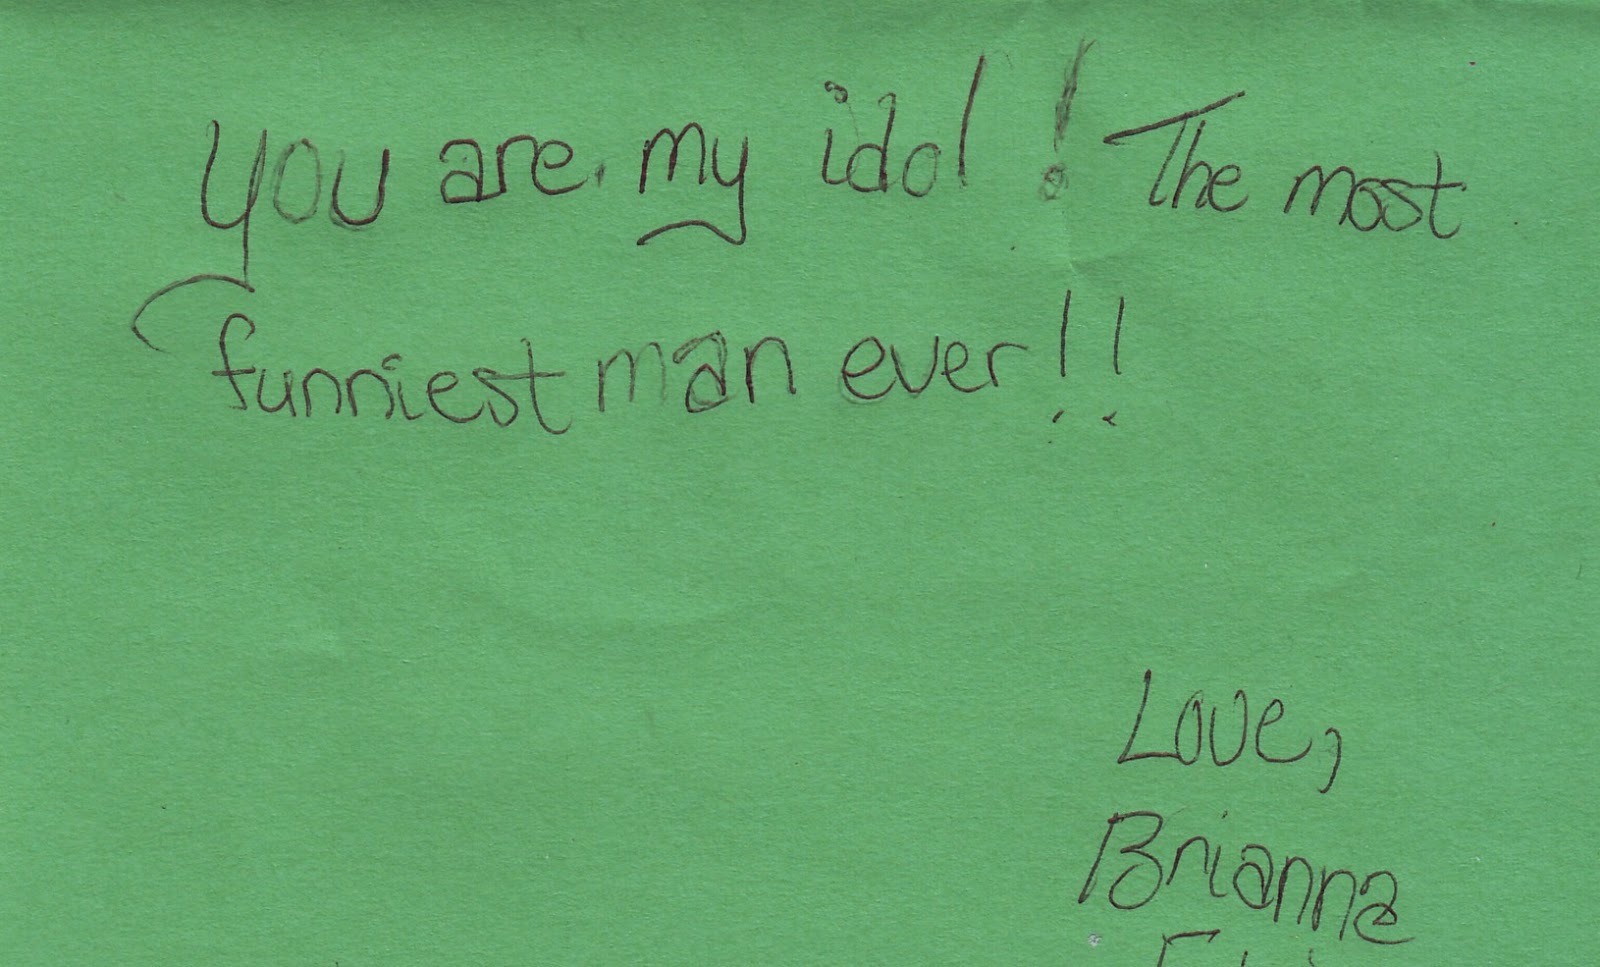 you are my idol! The most
funniest man ever!!
Love,
Brianna